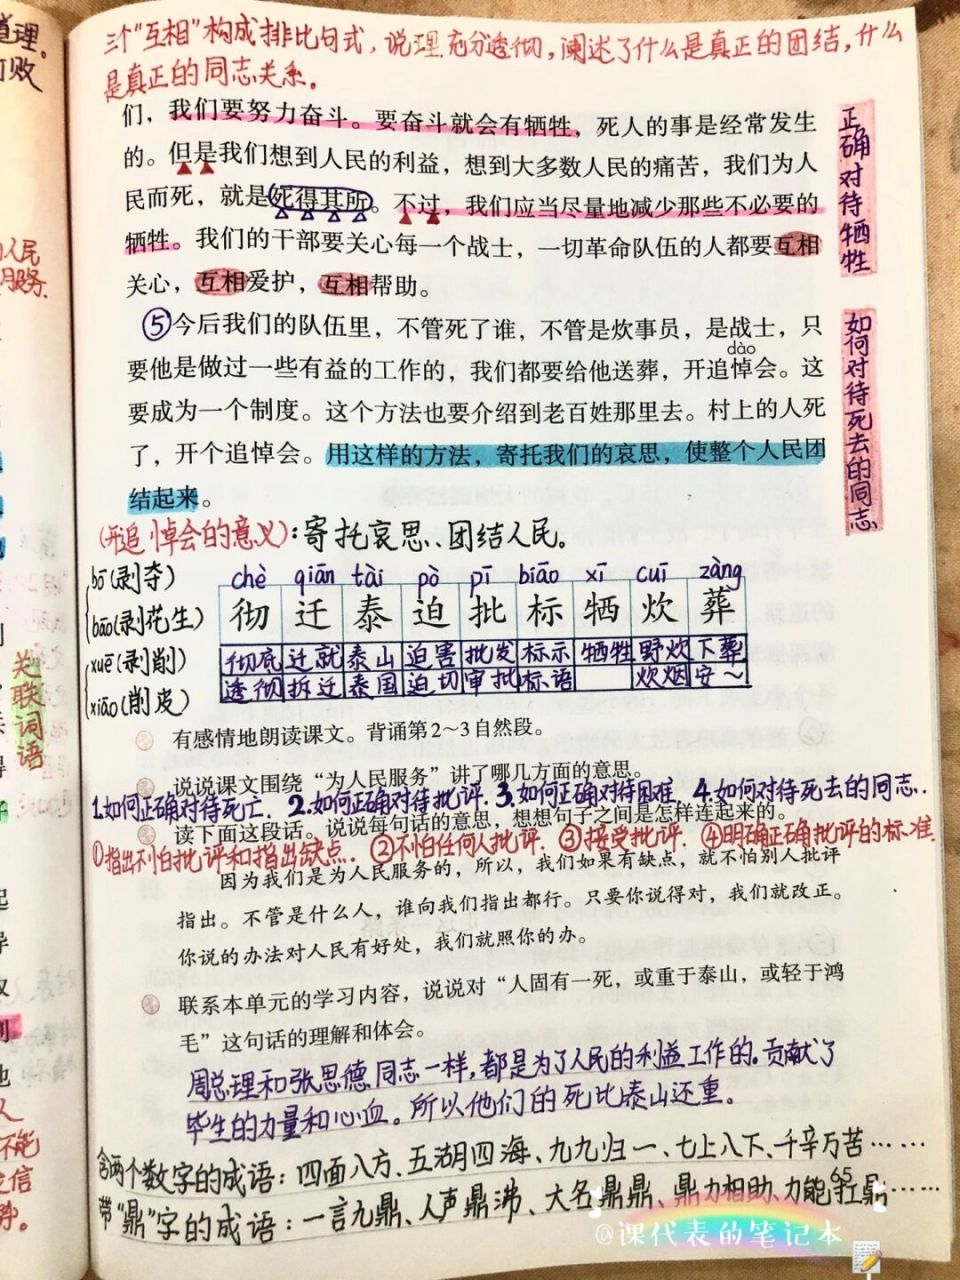 三个“互相”构成排比句式，说理充分透彻，阐述了什么是真正的团结，什么
是真正的同志关系。
们，我们要努力奋斗。要奋斗就会有牺牲，死人的事是经常发生
的。但是我们想到人民的利益，想到大多数人民的痛苦，我们为人
民而死，就是死得其所。不过，我们应当尽量地减少那些不必要的
牺牲。我们的干部要关心每一个战士，一切革命队伍的人都要互相
关心，互相爱护，互相帮助。
正确对待牺牲
⑤今后我们的队伍里，不管死了谁，不管是炊事员，是战士，只
dào
要他是做过一些有益的工作的，我们都要给他送葬，开追悼会。这
要成为一个制度。这个方法也要介绍到老百姓那里去。村上的人死
了，开个追悼会。用这样的方法，寄托我们的哀思，使整个人民团
结起来。
如何对待死去的同志
(开追悼会的意义)：寄托哀思、团结人民。
bō(剥夺)
bāo(剥花生)
xuē(剥削)
xiāo(削皮)
chè qiān tài pò pī biāo xī cuī zàng
彻 迁 泰 迫 批 标 牺 炊 葬
彻底 迁就 泰山 迫害 批发 标示 牺牲 野炊 下葬
透彻 拆迁 泰国 迫切 审批 标语 炊烟 安~
有感情地朗读课文。背诵第2～3自然段。
说说课文围绕“为人民服务”讲了哪几方面的意思。
1.如何正确对待死亡. 2.如何正确对待批评. 3.如何正确对待困难. 4.如何对待死去的同志.
读下面这段话。说说每句话的意思，想想句子之间是怎样连起来的。
①指出不怕批评和指出缺点. ②不怕任何人批评. ③接受批评. ④明确正确批评的标准.
因为我们是为人民服务的，所以，我们如果有缺点，就不怕别人批评
指出。不管是什么人，谁向我们指出都行。只要你说得对，我们就改正。
你说的办法对人民有好处，我们就照你的办。
联系本单元的学习内容，说说对“人固有一死，或重于泰山，或轻于鸿
毛”这句话的理解和体会。
周总理和张思德同志一样，都是为了人民的利益工作的。贡献了
毕生的力量和心血。所以他们的死比泰山还重。
含两个数字的成语：四面八方、五湖四海、九九归一、七上八下、千辛万苦……
65
带“鼎”字的成语：一言九鼎、人声鼎沸、大名鼎鼎、鼎力相助、力能扛鼎……
@课代表的笔记本
关联词语